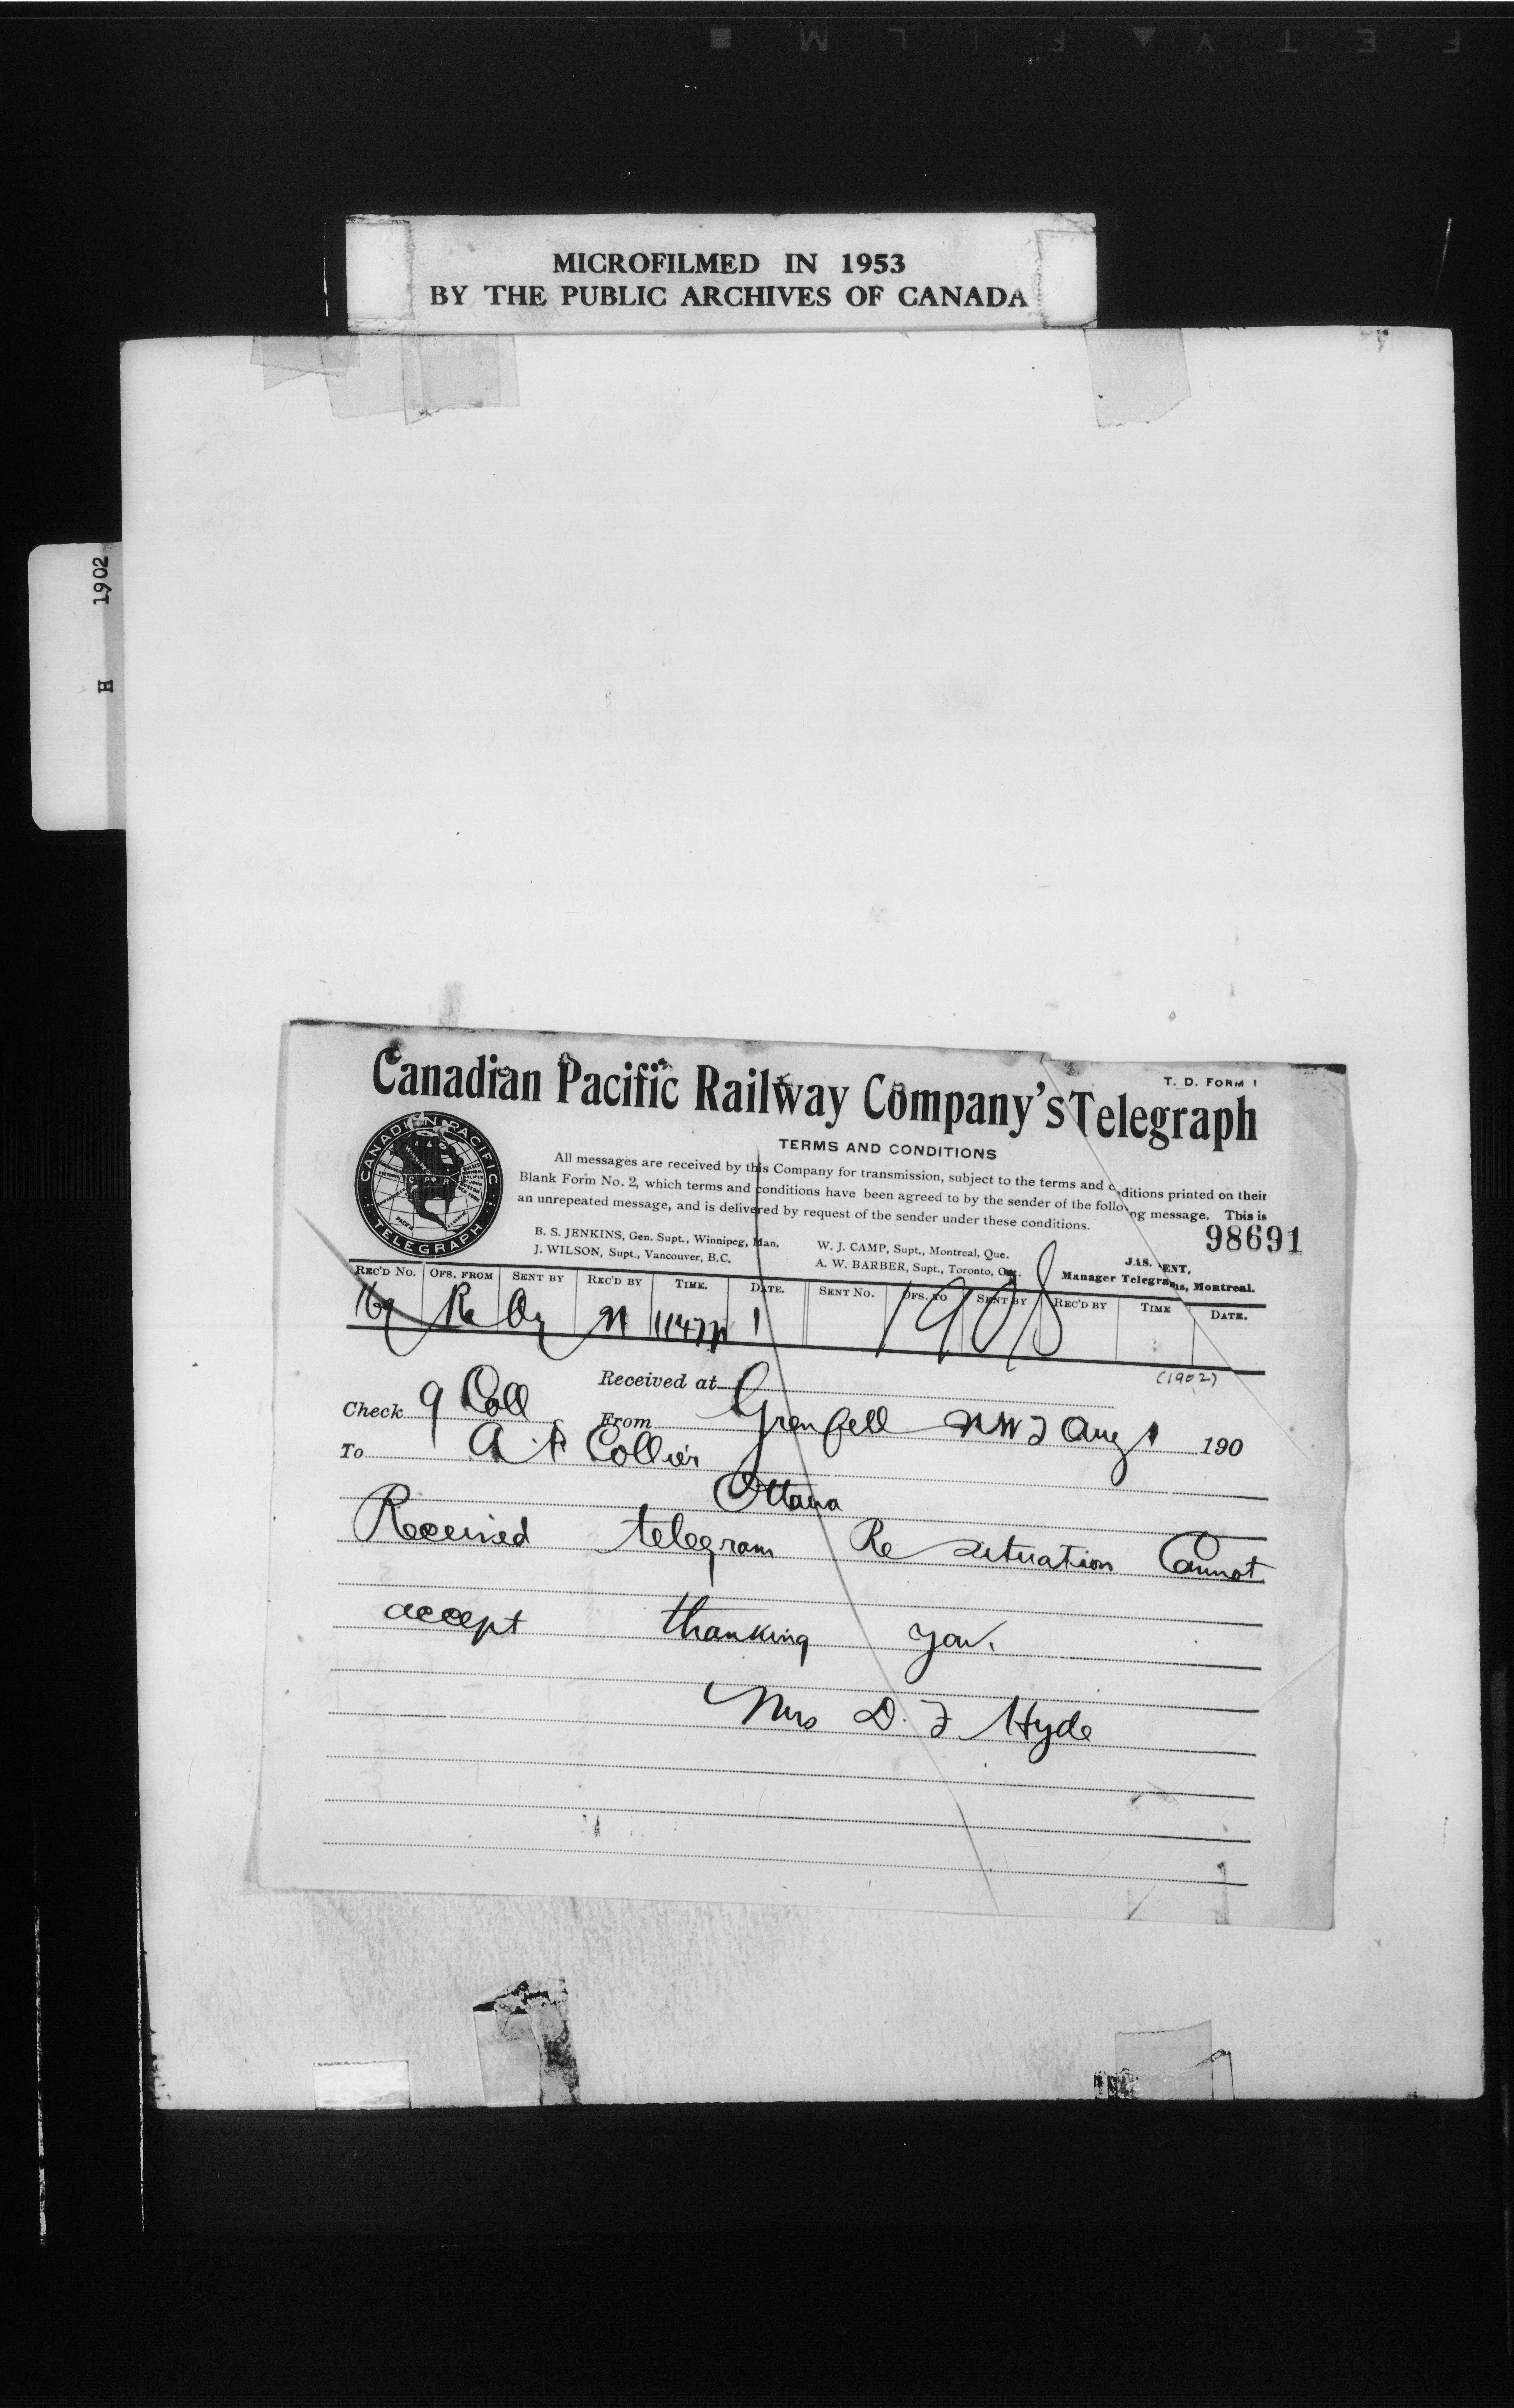 MICROFILMED IN 1953
BY THE PUBLIC ARCHIVES OF CANADA
1902
H
T. D. FORM 1
Canadian Pacific Railway Company's Telegraph
CANADIAN PACIFIC
TELEGRAPH
TERMS AND CONDITIONS
All messages are received by this Company for transmission, subject to the terms and conditions printed on their
Blank Form No. 2, which terms and conditions have been agreed to by the sender of the following message. This is
an unrepeated message, and is delivered by request of the sender under these conditions.
98691
B. S. JENKINS, Gen. Supt., Winnipeg, Man.
J. WILSON, Supt., Vancouver, B.C.
W. J. CAMP, Supt., Montreal, Que.
A. W. BARBER, Supt., Toronto, Ont.
JAS. KENT,
Manager Telegrams, Montreal.
REC'D No. OFS. FROM SENT BY REC'D BY TIME. DATE. SENT No. OFS. TO SENT BY REC'D BY TIME DATE.
(1902)
Received at
Check 9 Coll From Grenfell NWT Aug 1 190
To A. F. Collier
Ottawa
Received telegram Re situation Cannot
accept thanking you.
Mrs D. F Hyde